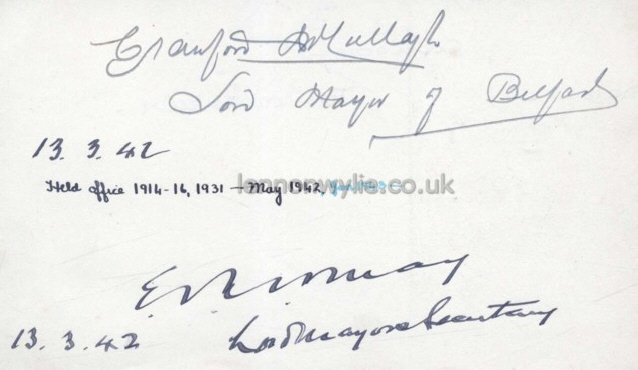 Crawford McCullagh
Lord Mayor of Belfast
13. 3. 42
Held office 1914-16, 1931 - May 1942,
lennonwylie.co.uk
13. 3. 42 Lord Mayors Secretary